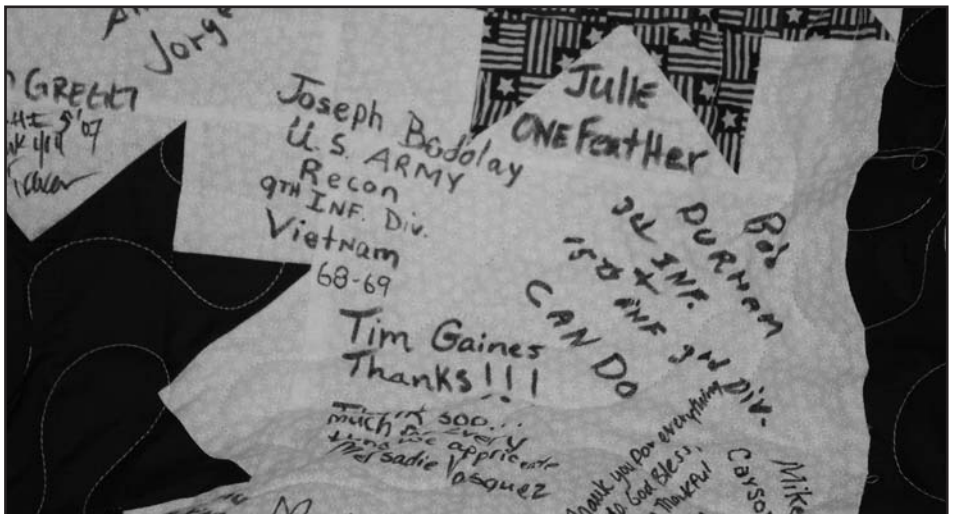 Jorge
GREGH
5'07
Joseph Bodolay
U.S. ARMY
Recon
9TH INF. Div.
VietNam
68-69
JuLIE
ONE FeatHer
Bob
DURHAM
3d INF.
15th INF 3rd Div.
CAN DO
Tim Gaines
Thanks!!!
soo...
much
we appriceate
Mersadie Vasquez
Thank you for everything
God Bless,
Thankful
Mike
Carso